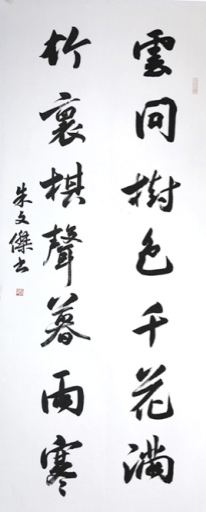 雲間樹色千花滿
竹裏棋聲暮雨寒
朱文傑書